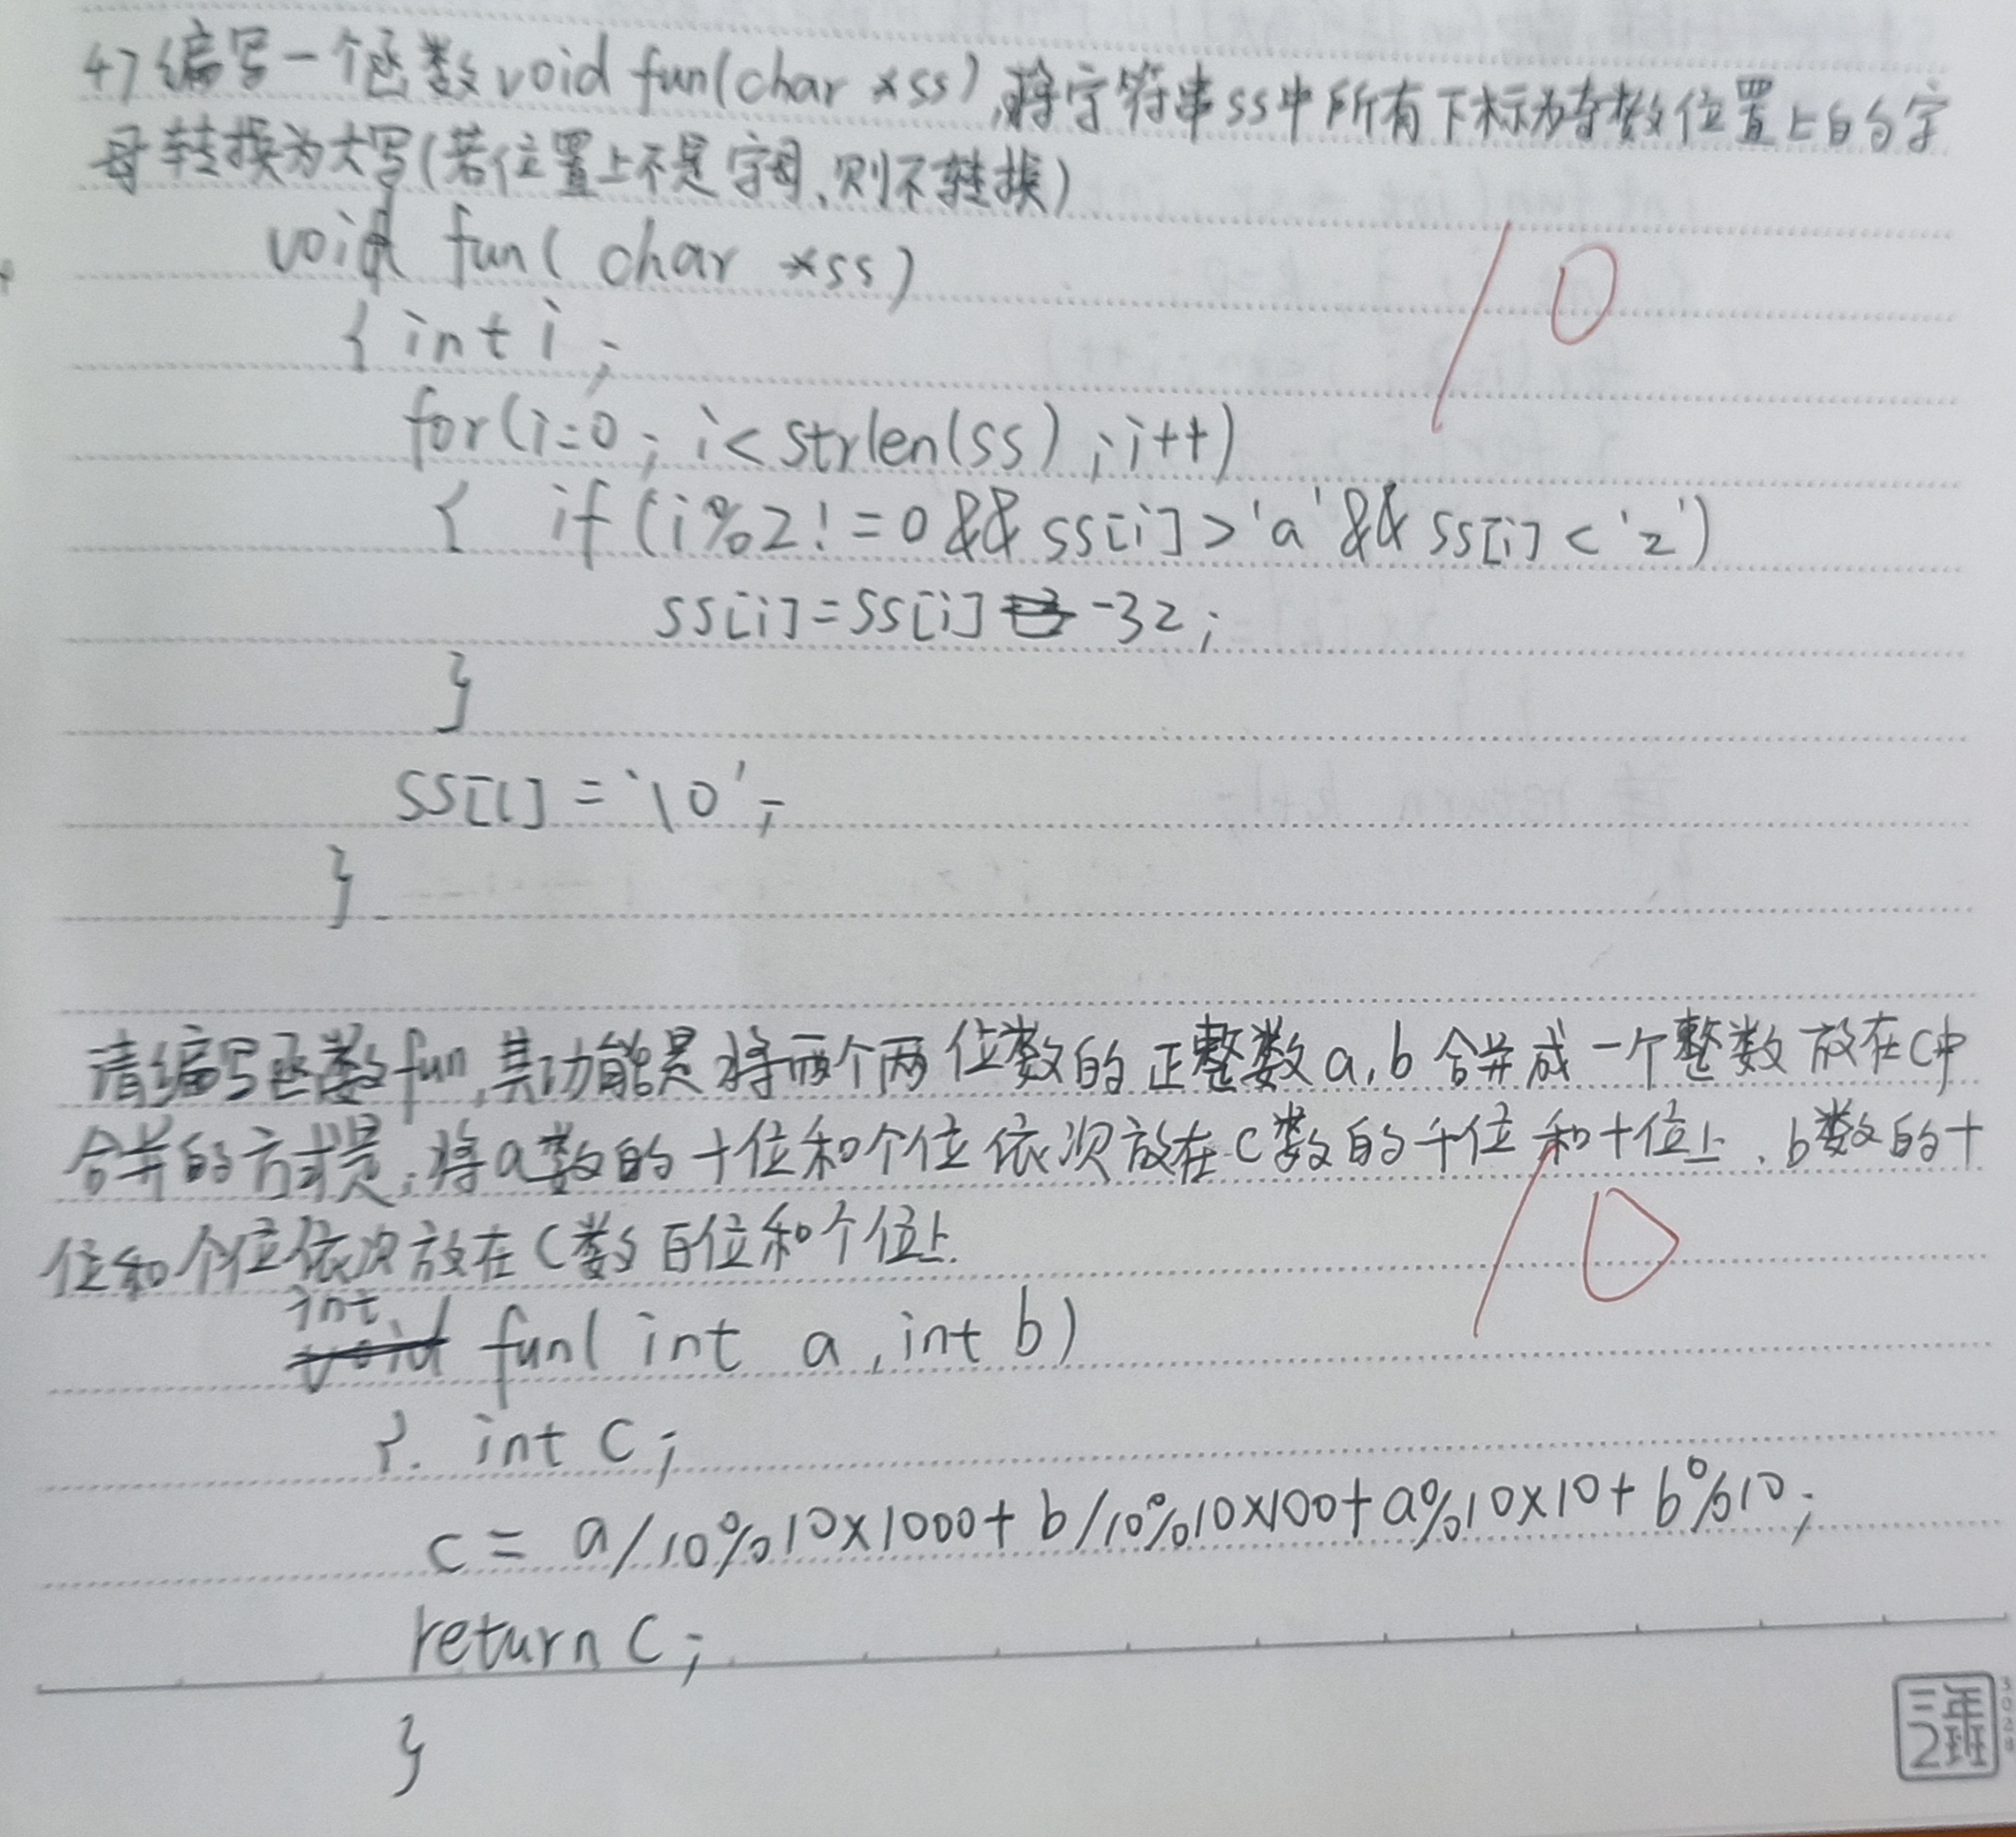 47编写一个函数void fun(char *ss),将字符串ss中所有下标为奇数位置上的字
母转换为大写(若位置上不是字母,则不转换)
void fun( char *ss)
{ int i;
for(i=0; i<strlen(ss);i++)
{ if(i%2!=0&&ss[i]>'a'&&ss[i]<'z')
ss[i]=ss[i]-32;
}
ss[i]='\0';
}
10
请编写函数fun,其功能是将两个两位数的正整数a,b合并成一个整数放在c中
合并的方式是:将a数的十位和个位依次放在c数的千位和十位上,b数的十
位和个位依次放在c数百位和个位上.
10
int
void fun( int a,int b)
{. int c;
c= a/10%10×1000+b/10%10×100+a%10×10+b%10;
return c;
}
三年
2班